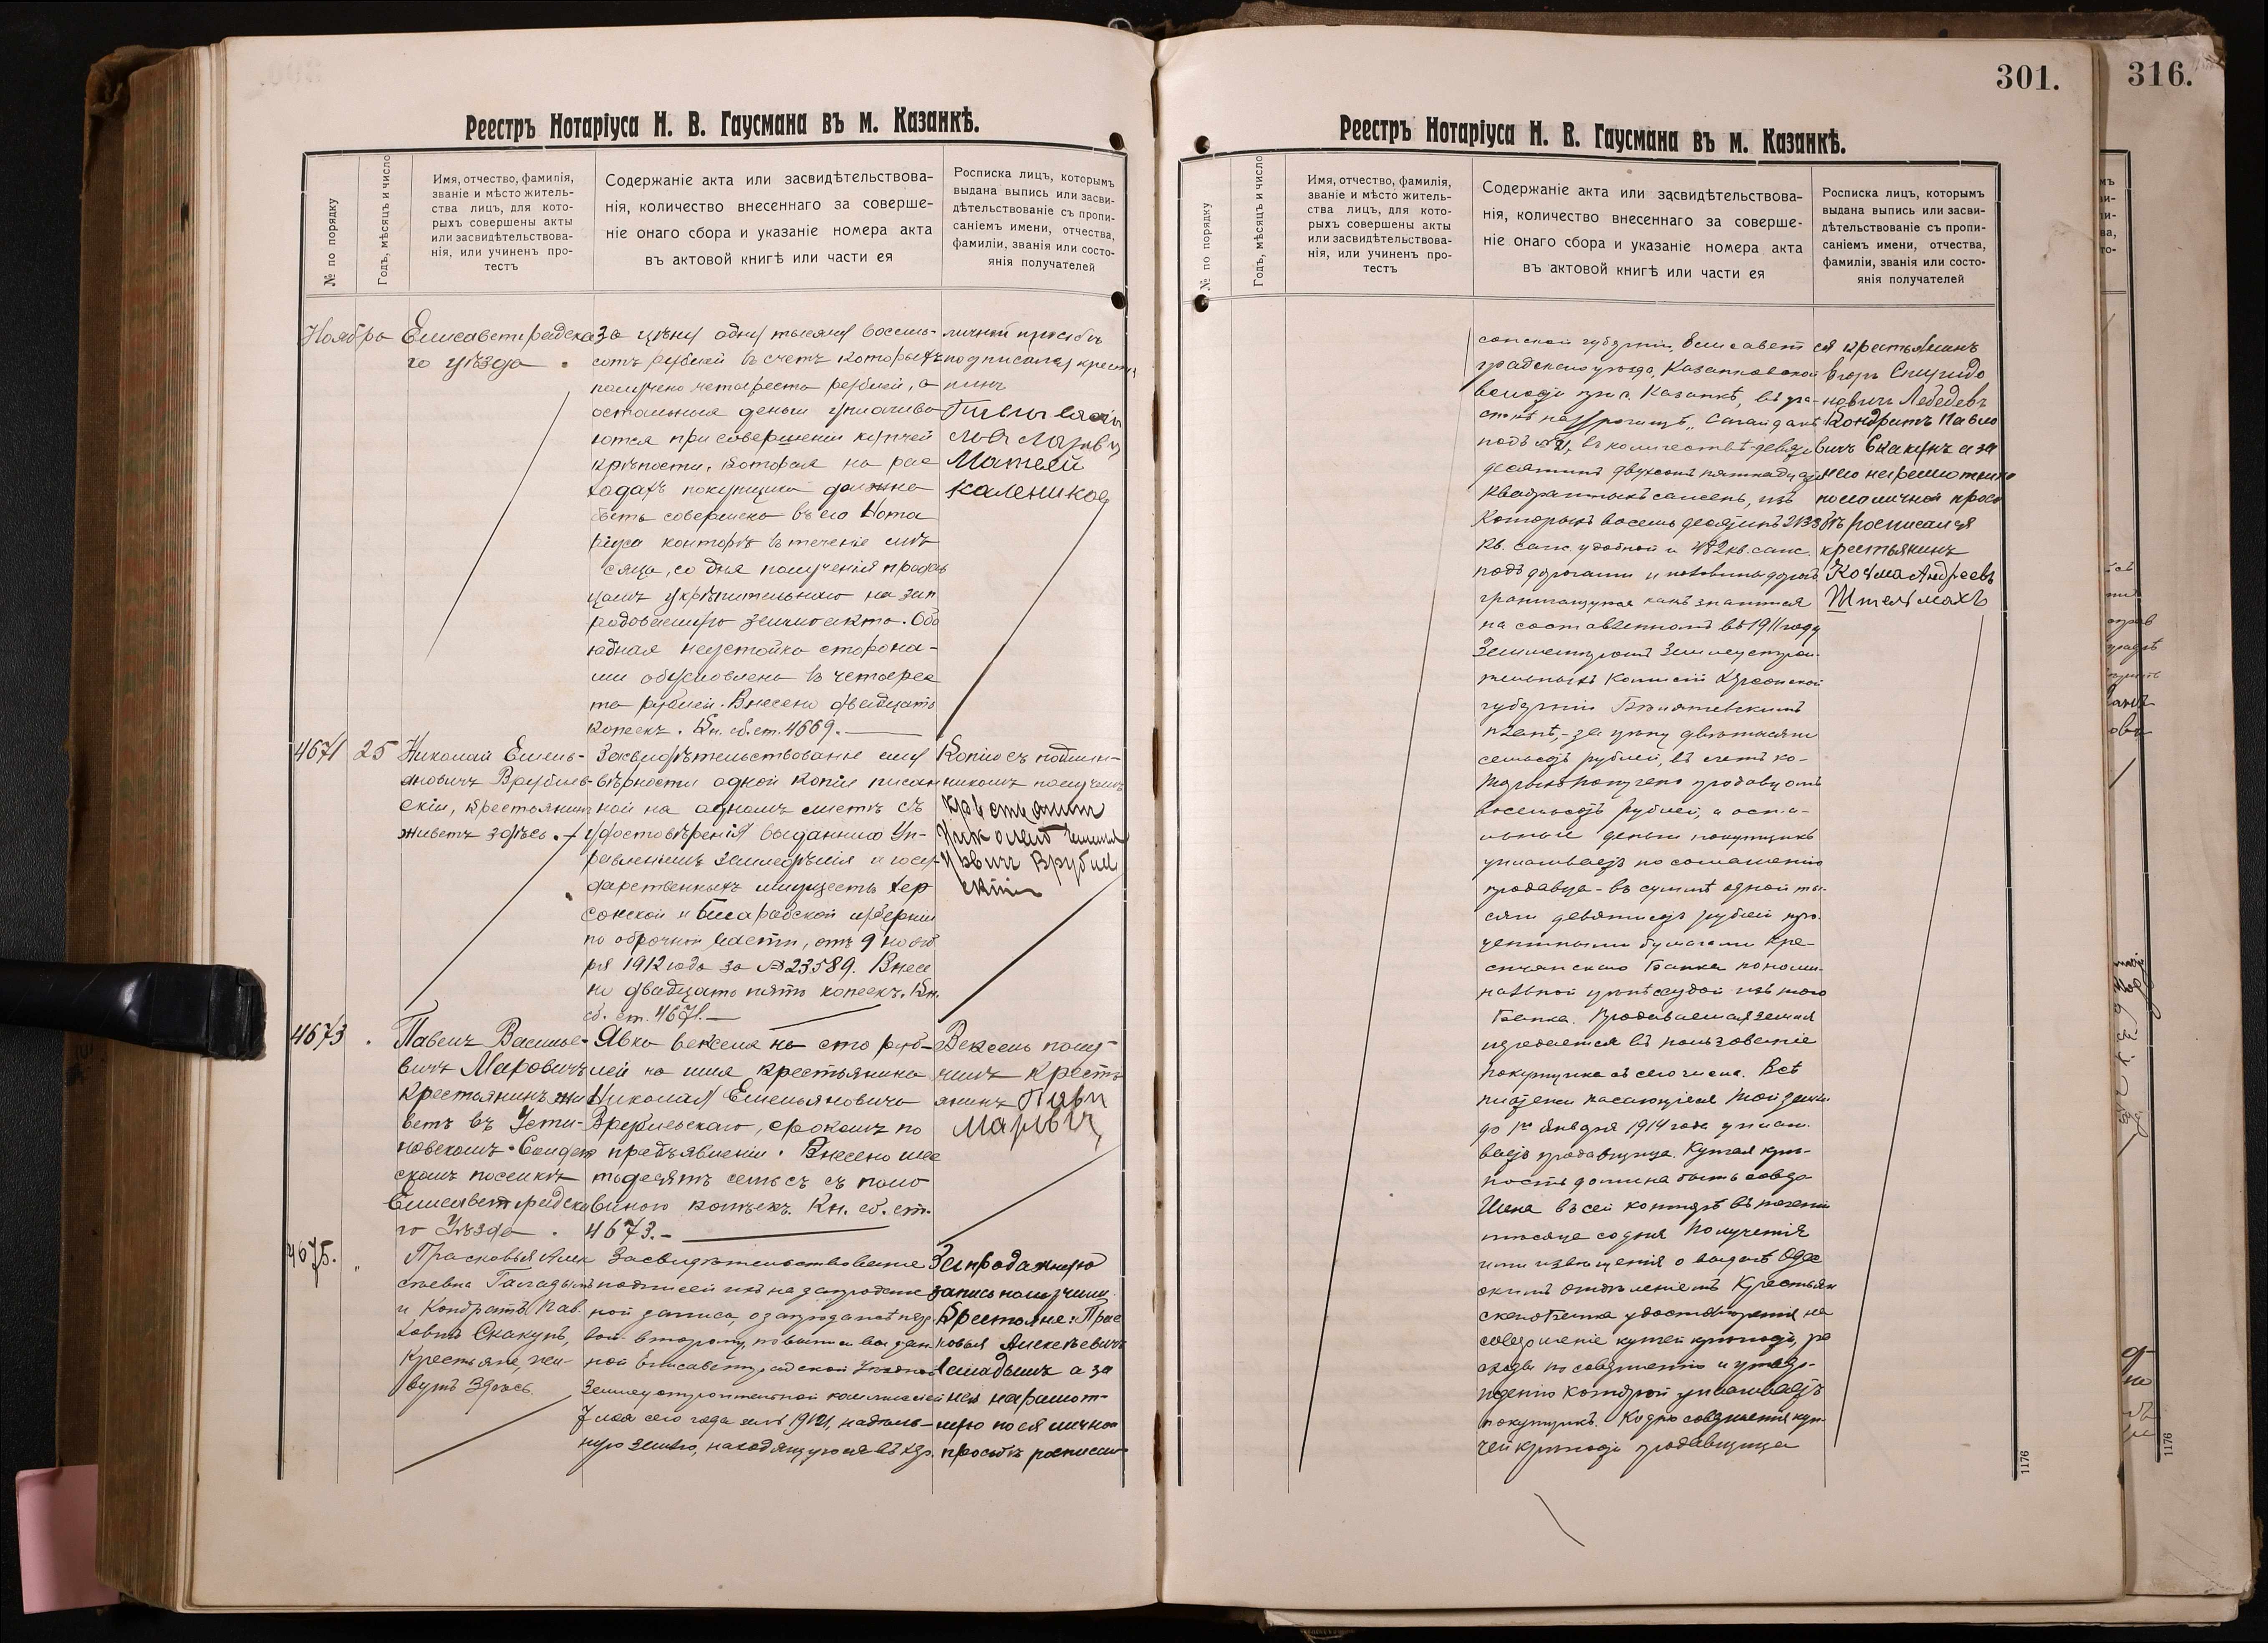 301.
316.
Реестръ Нотаріуса Н. В. Гаусмана въ м. Казанкѣ.
№ по порядку
Годъ, мѣсяцъ и число
Имя, отчество, фамилія,
званіе и мѣсто житель-
ства лицъ, для кото-
рыхъ совершены акты
или засвидѣтельствова-
нія, или учиненъ про-
тестъ
Содержаніе акта или засвидѣтельствова-
нія, количество внесеннаго за соверше-
ніе онаго сбора и указаніе номера акта
въ актовой книгѣ или части ея
Росписка лицъ, которымъ
выдана выпись или засви-
дѣтельствованіе съ пропи-
саніемъ имени, отчества,
фамиліи, званія или состо-
янія получателей
Ноября
Елисаветградска
го уѣзда
за цѣну одну тысячу восемь-
сотъ рублей въ счетъ которыхъ
получено четыреста рублей, а
остальныя деньги уплачива
ются при совершеніи купчей
крѣпости, которая на рас
ходахъ покупщика должна
быть совершена въ его Нота
ріуса конторѣ въ теченіе мѣ
сяца, со дня полученія продав
цомъ укрѣпительнаго на зап
родоваемую землю акта. Обо
юдная неустойка сторона-
ми обусловлена въ четырес
та рублей. Внесено двадцать
копеекъ. Кн. сб. ст. 4669.
личной просьбѣ
подписался крест
нинъ
Матвей
Калеников
4671
25
Николай Емель-
яновичъ Врубель-
скій, крестьянинъ
живетъ здѣсь.
Засвидѣтельствованіе ему
вѣрности одной копіи писан
ной на одномъ листѣ съ
удостовѣренія выданнаго Уп-
равленіемъ Земледѣлія и госу-
дарственныхъ имуществъ Хер
сонской и Бесарабской губерніи
по оброчной части, отъ 9 нояб
ря 1912 года за № 23589. Внесе
но двадцать пять копеекъ. Кн.
сб. ст. 4671.
Копію съ подлин-
никомъ получилъ
крестянин
Николай Емель
яович Врубел
ский
4673
Павелъ Василье-
вичъ Маровичъ
крестьянинъ жи
ветъ въ Усти-
новскомъ
скомъ поселкѣ
Елисаветградска
го Уѣзда.
Явка векселя на сто руб-
лей на имя крестьянина
Николая Емельяновича
Врубельскаго, срокомъ по
предъявленіи. Внесено шес
тьдесятъ семь съ поло
виною копѣекъ. Кн. сб. ст.
4673.
Вексель полу-
чилъ кресть
янинъ Павл
Марович
4675.
"
Прасковья Алек
сѣевна
и Кондратъ Пав
ловичъ Скакунъ,
крестьяне, жи-
вутъ здѣсь.
Засвидѣтельствованіе
подписей ихъ на запродаж
ной записи, о запродажѣ пер
вой второму, по выписи выдан
ной Елисаветградской Уѣздной
Землеустроительной комиссіей
7 мая сего года за № 19121, надѣль-
ную землю, находящуюся въ Хер.
Запродажную
запись получили
Крестьяне: Прас
ковья Алексѣевна
а за
нея неграмот-
ную по ея личной
просьбѣ росписал
Реестръ Нотаріуса Н. В. Гаусмана въ м. Казанкѣ.
№ по порядку
Годъ, мѣсяцъ и число
Имя, отчество, фамилія,
званіе и мѣсто житель-
ства лицъ, для кото-
рыхъ совершены акты
или засвидѣтельствова-
нія, или учиненъ про-
тестъ
Содержаніе акта или засвидѣтельствова-
нія, количество внесеннаго за соверше-
ніе онаго сбора и указаніе номера акта
въ актовой книгѣ или части ея
Росписка лицъ, которымъ
выдана выпись или засви-
дѣтельствованіе съ пропи-
саніемъ имени, отчества,
фамиліи, званія или состо-
янія получателей
сонской губерніи, Елисавет
градскаго уѣзда, Казанковской
волости при с. Казанкѣ, въ уча-
въ количествѣ девяти
десятинъ двухсотъ пятнадцати
квадратныхъ сажень, изъ
которыхъ восемь десятинъ 2133
кв. саж. удобной и 482 кв. саж.
подъ дорогами и половины дорогъ
граничащуюся какъ значится
на составленномъ въ 1911 году
Землемѣромъ Землеустрои-
тельныхъ Комисій Херсонской
губерніи
планѣ, - за цѣну двѣ тысячи
семьсотъ рублей, въ счетъ ко-
торыхъ получено продавцомъ
восемьсотъ рублей, а оста-
льныя деньги покупщикъ
уплачиваетъ по соглашенію
продавца - въ суммѣ одной ты-
сячи девятисотъ рублей про-
центными бумагами Кре-
стьянскаго Банка по номи-
нальной цѣнѣ ссудой изъ того
Банка. Продаваемая земля
передается въ пользованіе
покупщика съ сего числа. Всѣ
платежи касающіеся той земли
до 1го Января 1914 года уплачи
ваетъ продавщица. Купчая крѣ-
пость должна быть совер
шена въ сей конторѣ въ теченіи
мѣсяца со дня полученія
ими извѣщенія о выдачѣ Одес
скимъ отдѣленіемъ Крестьян
скаго Банка удостовѣренія на
совершеніе купчей крѣпости, ра
сходы по совершенію и утвер-
жденію которой уплачиваетъ
покупщикъ. Ко дню совершенія куп-
чей крѣпости продавщица
ся крестьянинъ
Егоръ Спиридо
новичъ Лебедевъ
Кондратъ Павло
вичъ Скакунъ а за
него неграмотнаго
по его личной прось
бѣ росписался
крестьянинъ
Козма Андреевъ
Штельмахъ
1176
1176